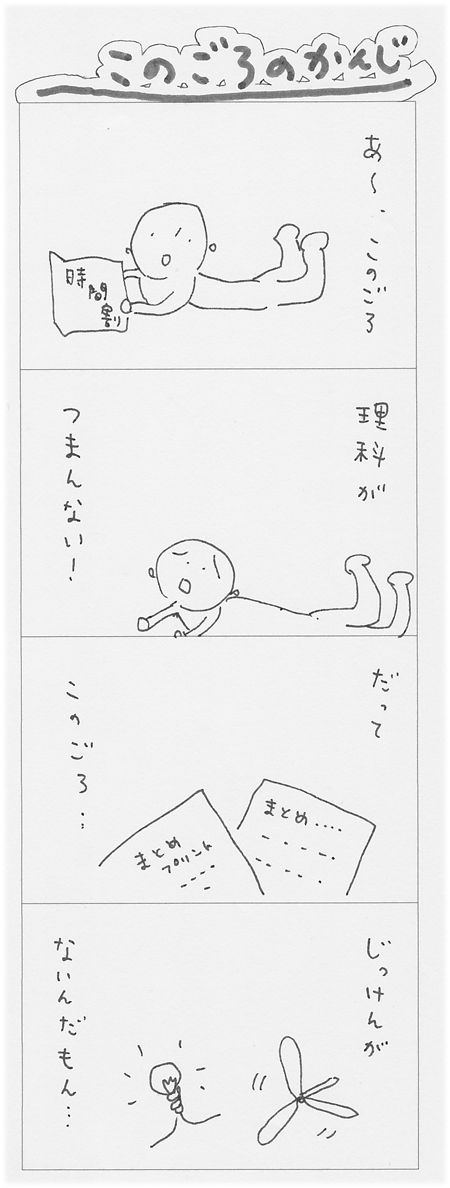 このごろのかんじ
あ〜、このごろ
時間割
理科が
つまんない!
だって
このごろ…
まとめ‥‥
まとめ
プリント
じっけんが
ないんだもん…